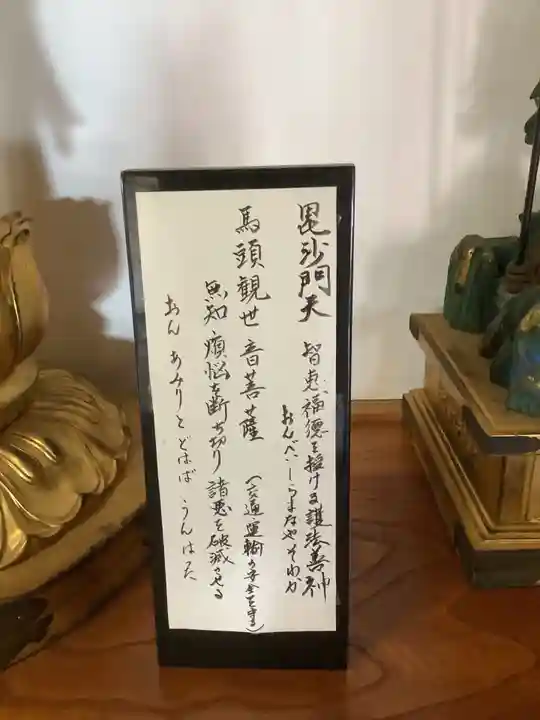 毘沙門天 智恵、福徳を授ける護法善神
おんべいしらまなやそわか
馬頭観世音菩薩 (交通運輸の安全を守る)
無知煩悩を断ち切り諸悪を破滅させる
おん あみりとどはば うんはった